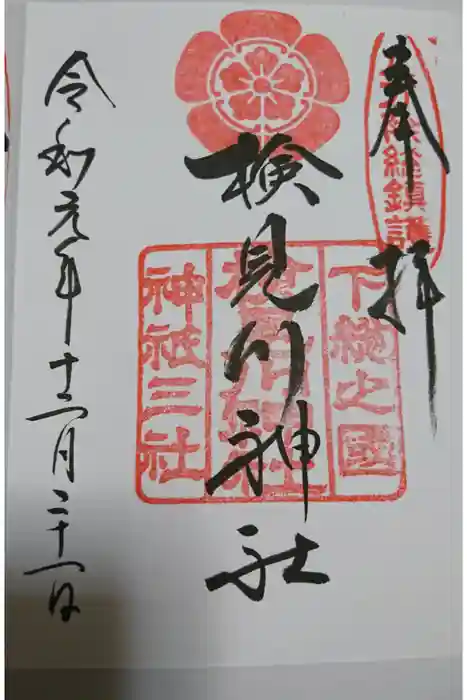 奉拝
下総之國
検見川神社
神社三社
令和元年十二月二十一日